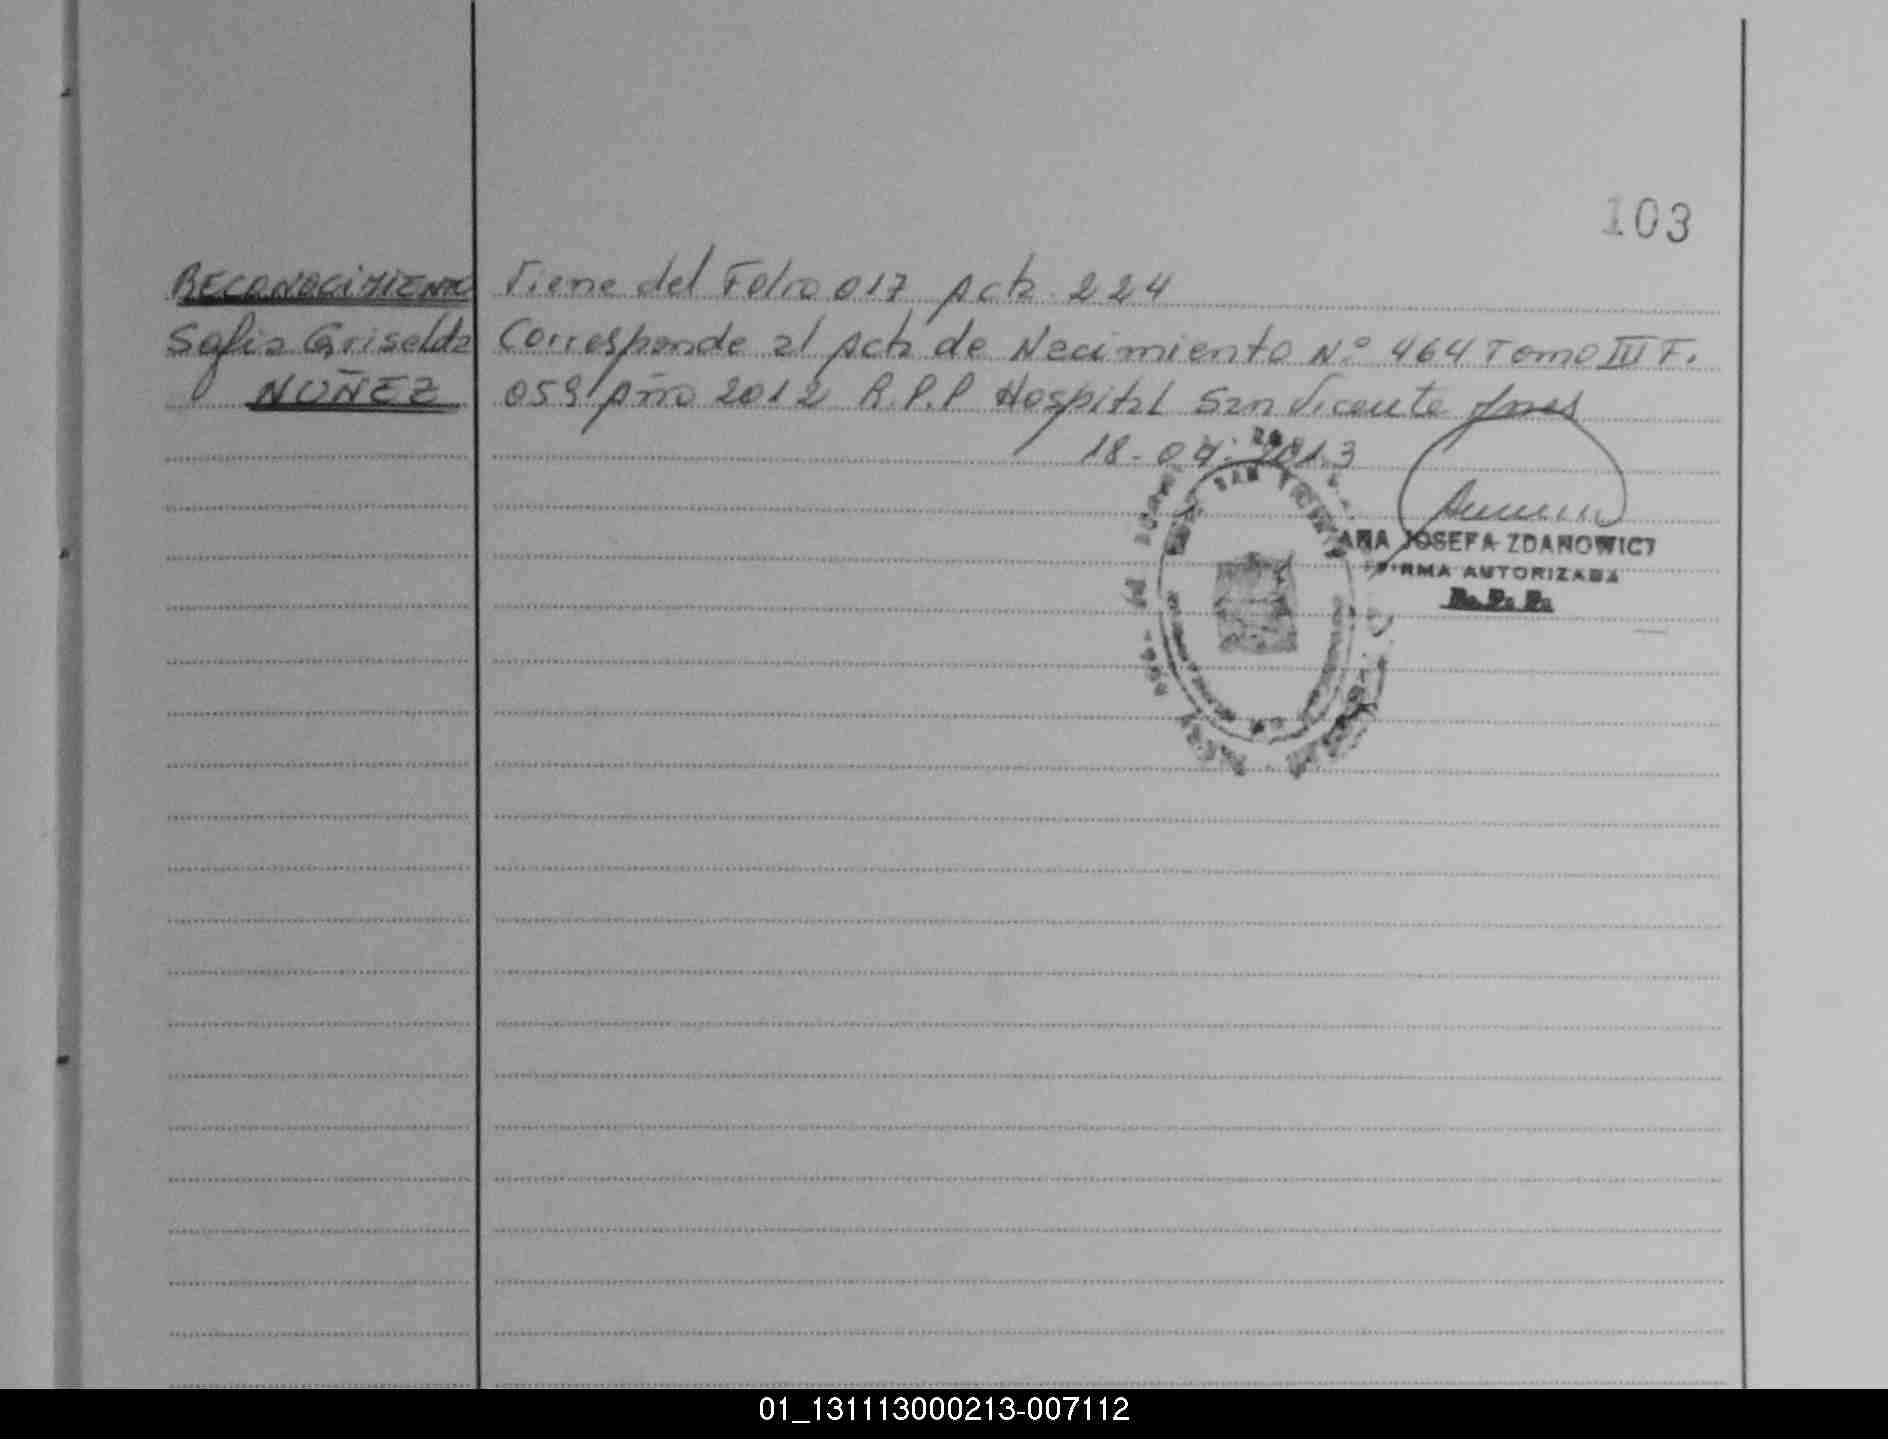 103
RECONOCIMIENTO Viene del Folio 017 Acta 224
Sofia Griselda Corresponde al Acta de Nacimiento Nº 464 Tomo III F.
NUÑEZ 059 Año 2012 R.P.P Hospital San Vicente
18-04-2013
SAN VICENTE
ANA JOSEFA ZDANOWICZ
FIRMA AUTORIZADA
R. P. P.
01_131113000213-007112